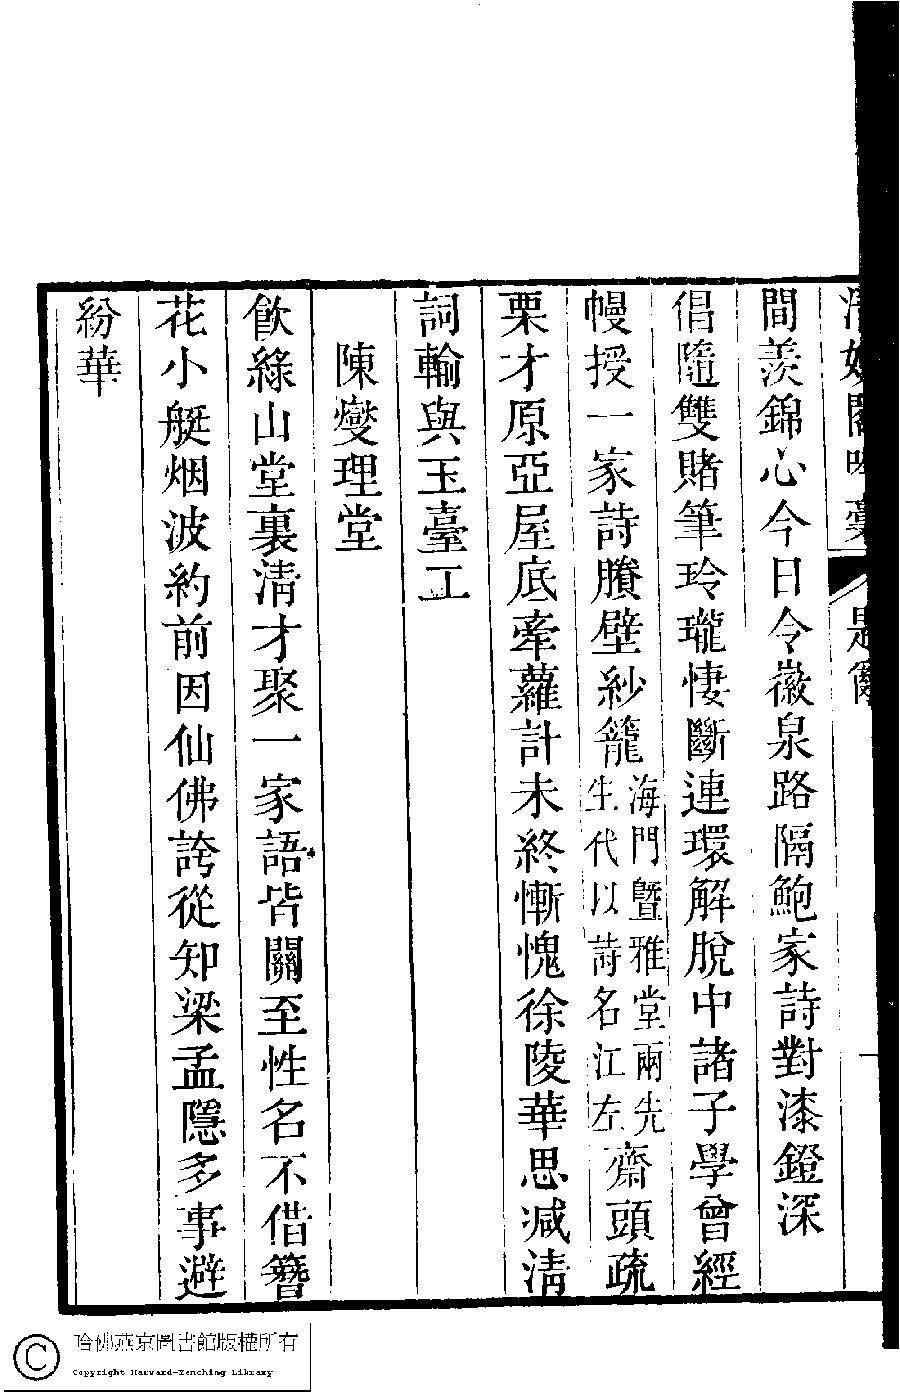 閣吟藁
題詞
間羨錦心今日令徽泉路隔鮑家詩對漆鐙深
倡隨雙賭筆玲瓏悽斷連環解脫中諸子學曾經
幔授一家詩賸壁紗籠海門暨雅堂兩先生代以詩名江左齋頭疏
栗才原亞屋底牽蘿計未終慚愧徐陵華思减清
詞輸與玉臺工
陳燮理堂
飲綠山堂裏清才聚一家語皆關至性名不借簪
花小艇烟波約前因仙佛誇從知梁孟隱多事避
紛華
哈佛燕京圖書館版權所有
Copyright Harvard-Yenching Library